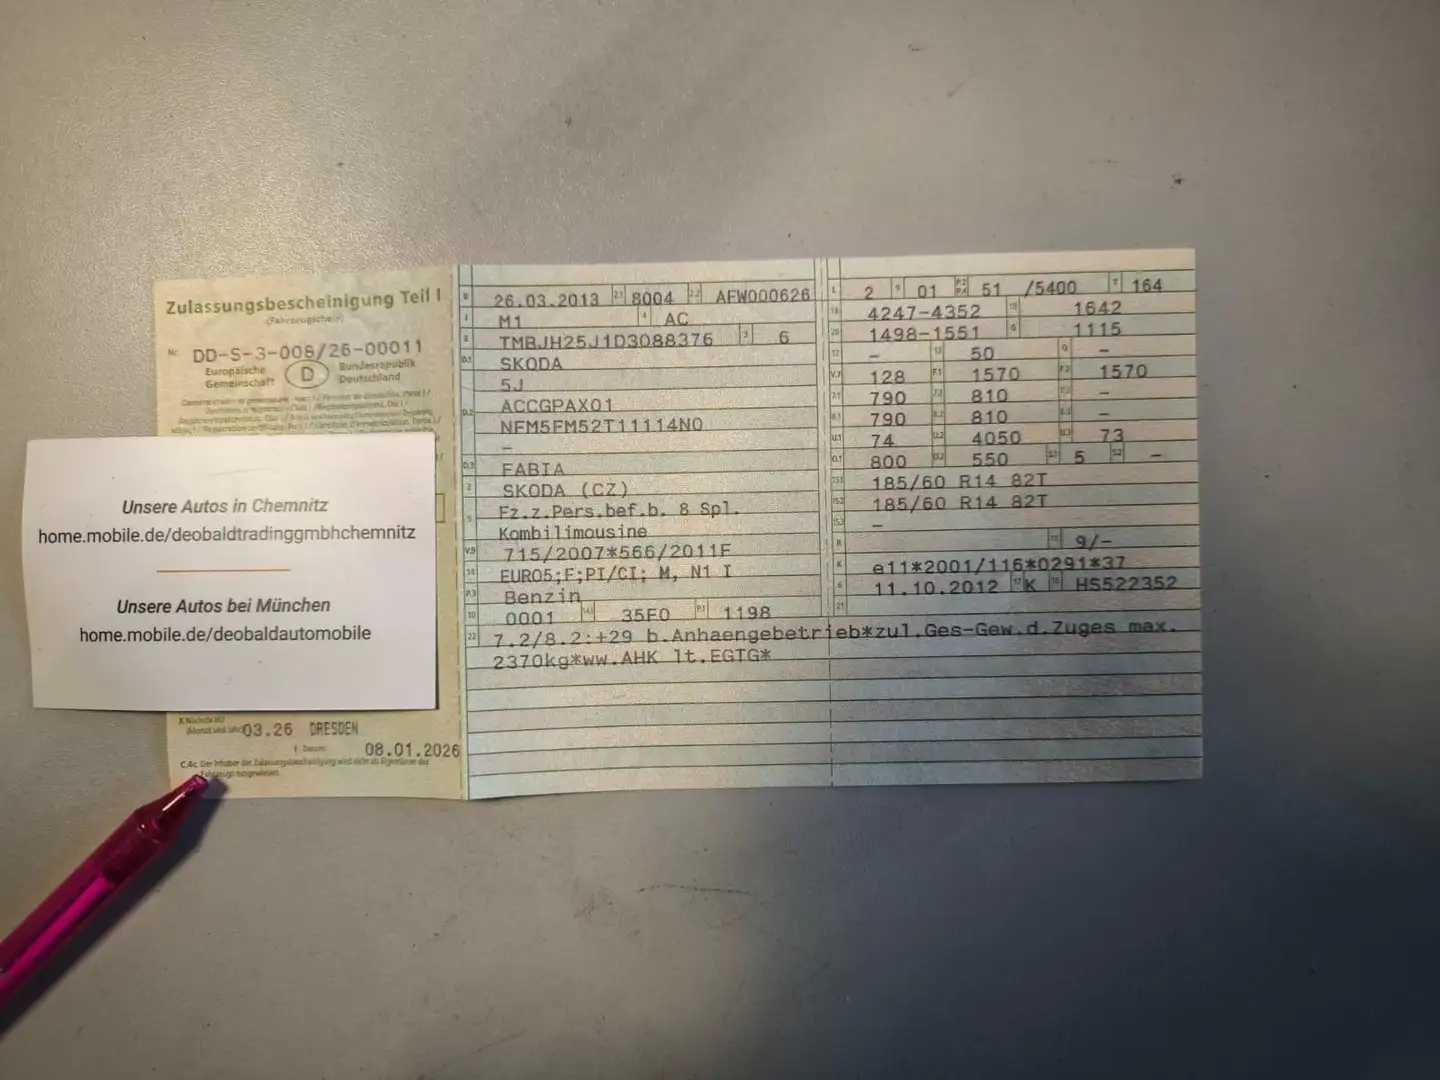 Zulassungsbescheinigung Teil I
(Fahrzeugschein)
Nr. DD-S-3-008/26-00011
Europäische Gemeinschaft D Bundesrepublik Deutschland
Unsere Autos in Chemnitz
home.mobile.de/deobaldtradinggmbhchemnitz
Unsere Autos bei München
home.mobile.de/deobaldautomobile
03.26 DRESDEN
I Datum 08.01.2026
C.4c Der Inhaber der Zulassungsbescheinigung wird nicht als Eigentümer des
Fahrzeugs ausgewiesen.
B 26.03.2013 2.1 8004 2.2 AFW000626
J M1 4 AC
E TMBJH25J1D3088376 3 6
D.1 SKODA
5J
D.2 ACCGPAX01
NFM5FM52T11114N0
–
D.3 FABIA
2 SKODA (CZ)
5 Fz.z.Pers.bef.b. 8 Spl.
Kombilimousine
V.9 715/2007*566/2011F
14 EURO5;F;PI/CI; M, N1 I
P.3 Benzin
10 0001 14.1 35F0 P.1 1198
22 7.2/8.2:+29 b.Anhaengebetrieb*zul.Ges-Gew.d.Zuges max.
2370kg*ww.AHK lt.EGTG*
L 2 9 01 P.2 P.4 51 /5400 T 164
18 4247-4352 19 1642
20 1498-1551 G 1115
12 – 13 50 Q –
V.7 128 F.1 1570 F.2 1570
7.1 790 7.2 810 7.3 –
8.1 790 8.2 810 8.3 –
U.1 74 U.2 4050 U.3 73
O.1 800 O.2 550 S.1 5 S.2 –
15.1 185/60 R14 82T
15.2 185/60 R14 82T
15.3 –
R 11 9/–
K e11*2001/116*0291*37
6 11.10.2012 17 K 16 HS522352
21